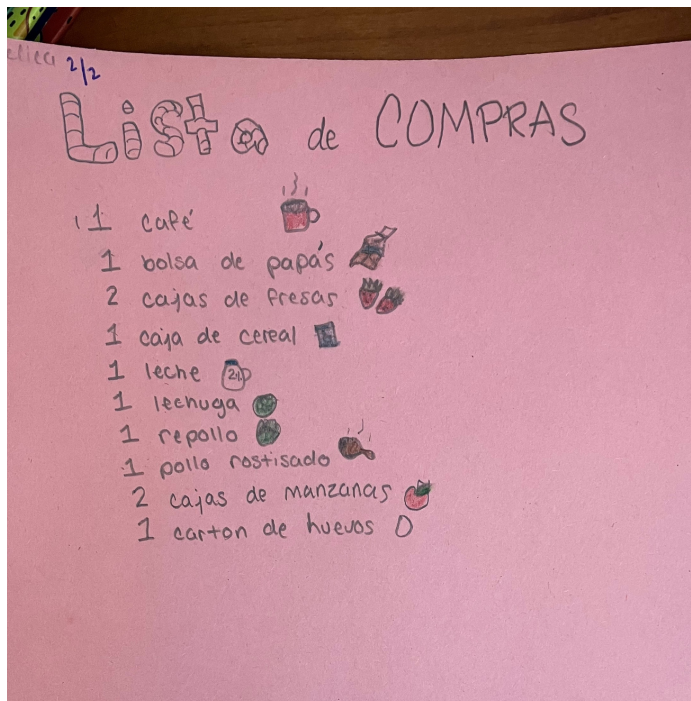 2/2
Lista de COMPRAS
1 café
1 bolsa de papás
2 cajas de fresas
1 caja de cereal
1 leche 2%
1 lechuga
1 repollo
1 pollo rostisado
2 cajas de manzanas
1 carton de huevos